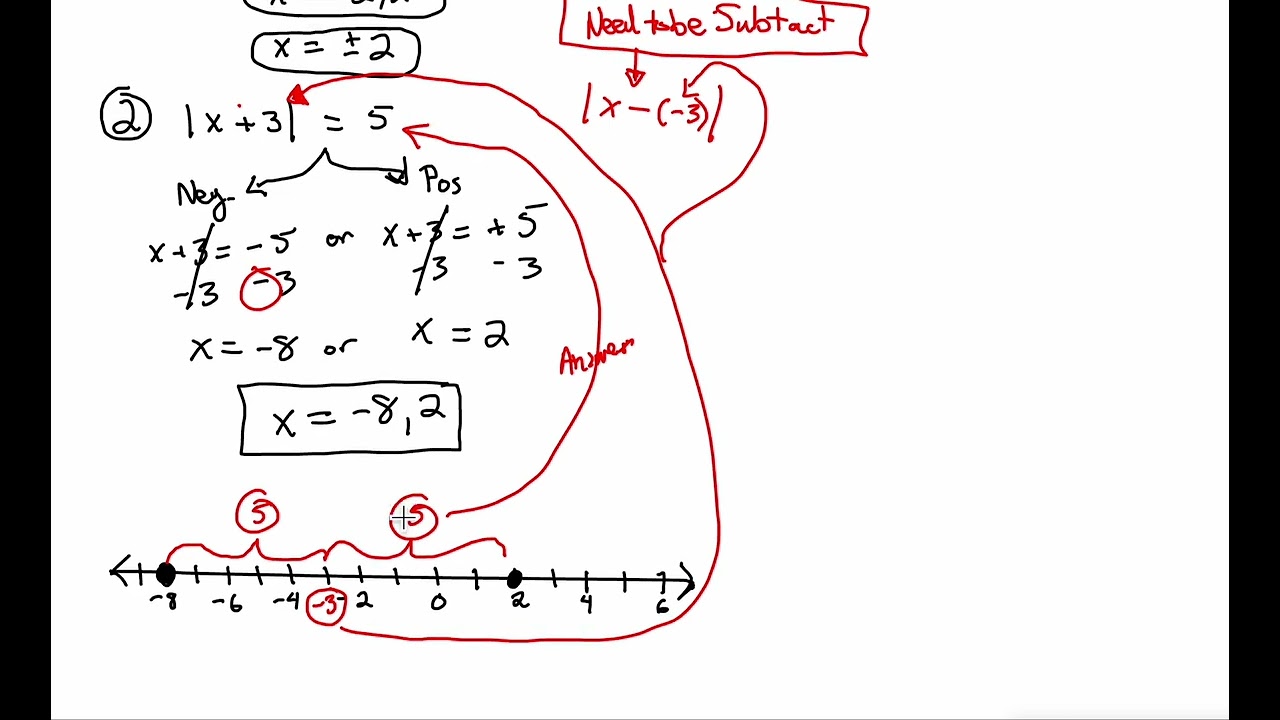 Need to be Subtact
x = ± 2
|x - (-3)|
② |x + 3| = 5
Neg. Pos
x + 3 = - 5 or x + 3 = + 5
- 3 - 3 - 3 - 3
x = -8 or x = 2
Answer
x = -8, 2
5 5
-8 -6 -4 -3 -2 0 2 4 6